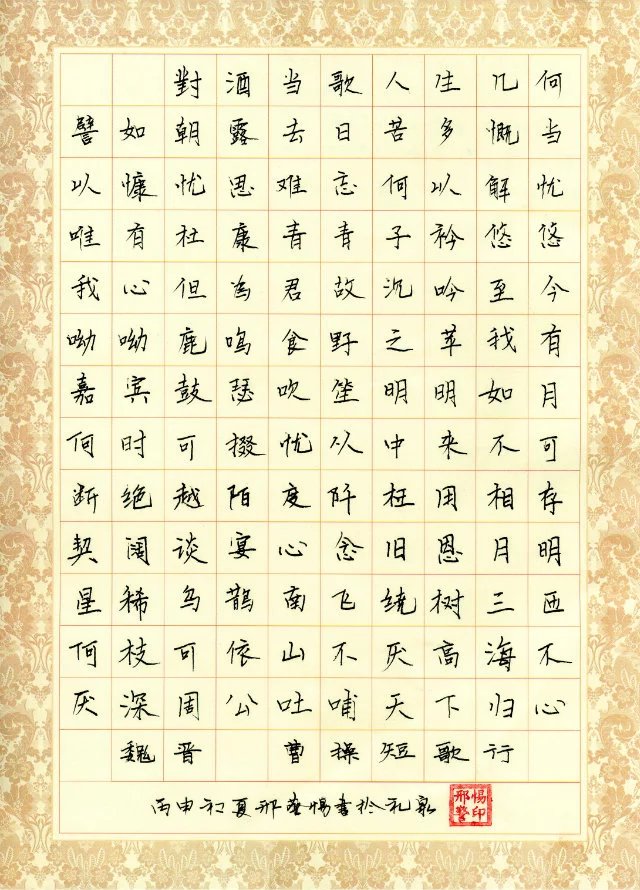 對酒当歌人生几何
譬如朝露去日苦多慨当
以慷忧思难忘何以解忧
唯有杜康青青子衿悠悠
我心但为君故沉吟至今
呦呦鹿鸣食野之苹我有
嘉宾鼓瑟吹笙明明如月
何时可掇忧从中来不可
断绝越陌度阡枉用相存
契阔谈宴心念旧恩月明
星稀乌鹊南飞绕树三匝
何枝可依山不厌高海不
厌深周公吐哺天下归心
魏晋 曹操短歌行
丙申初夏邢惕书於礼泉